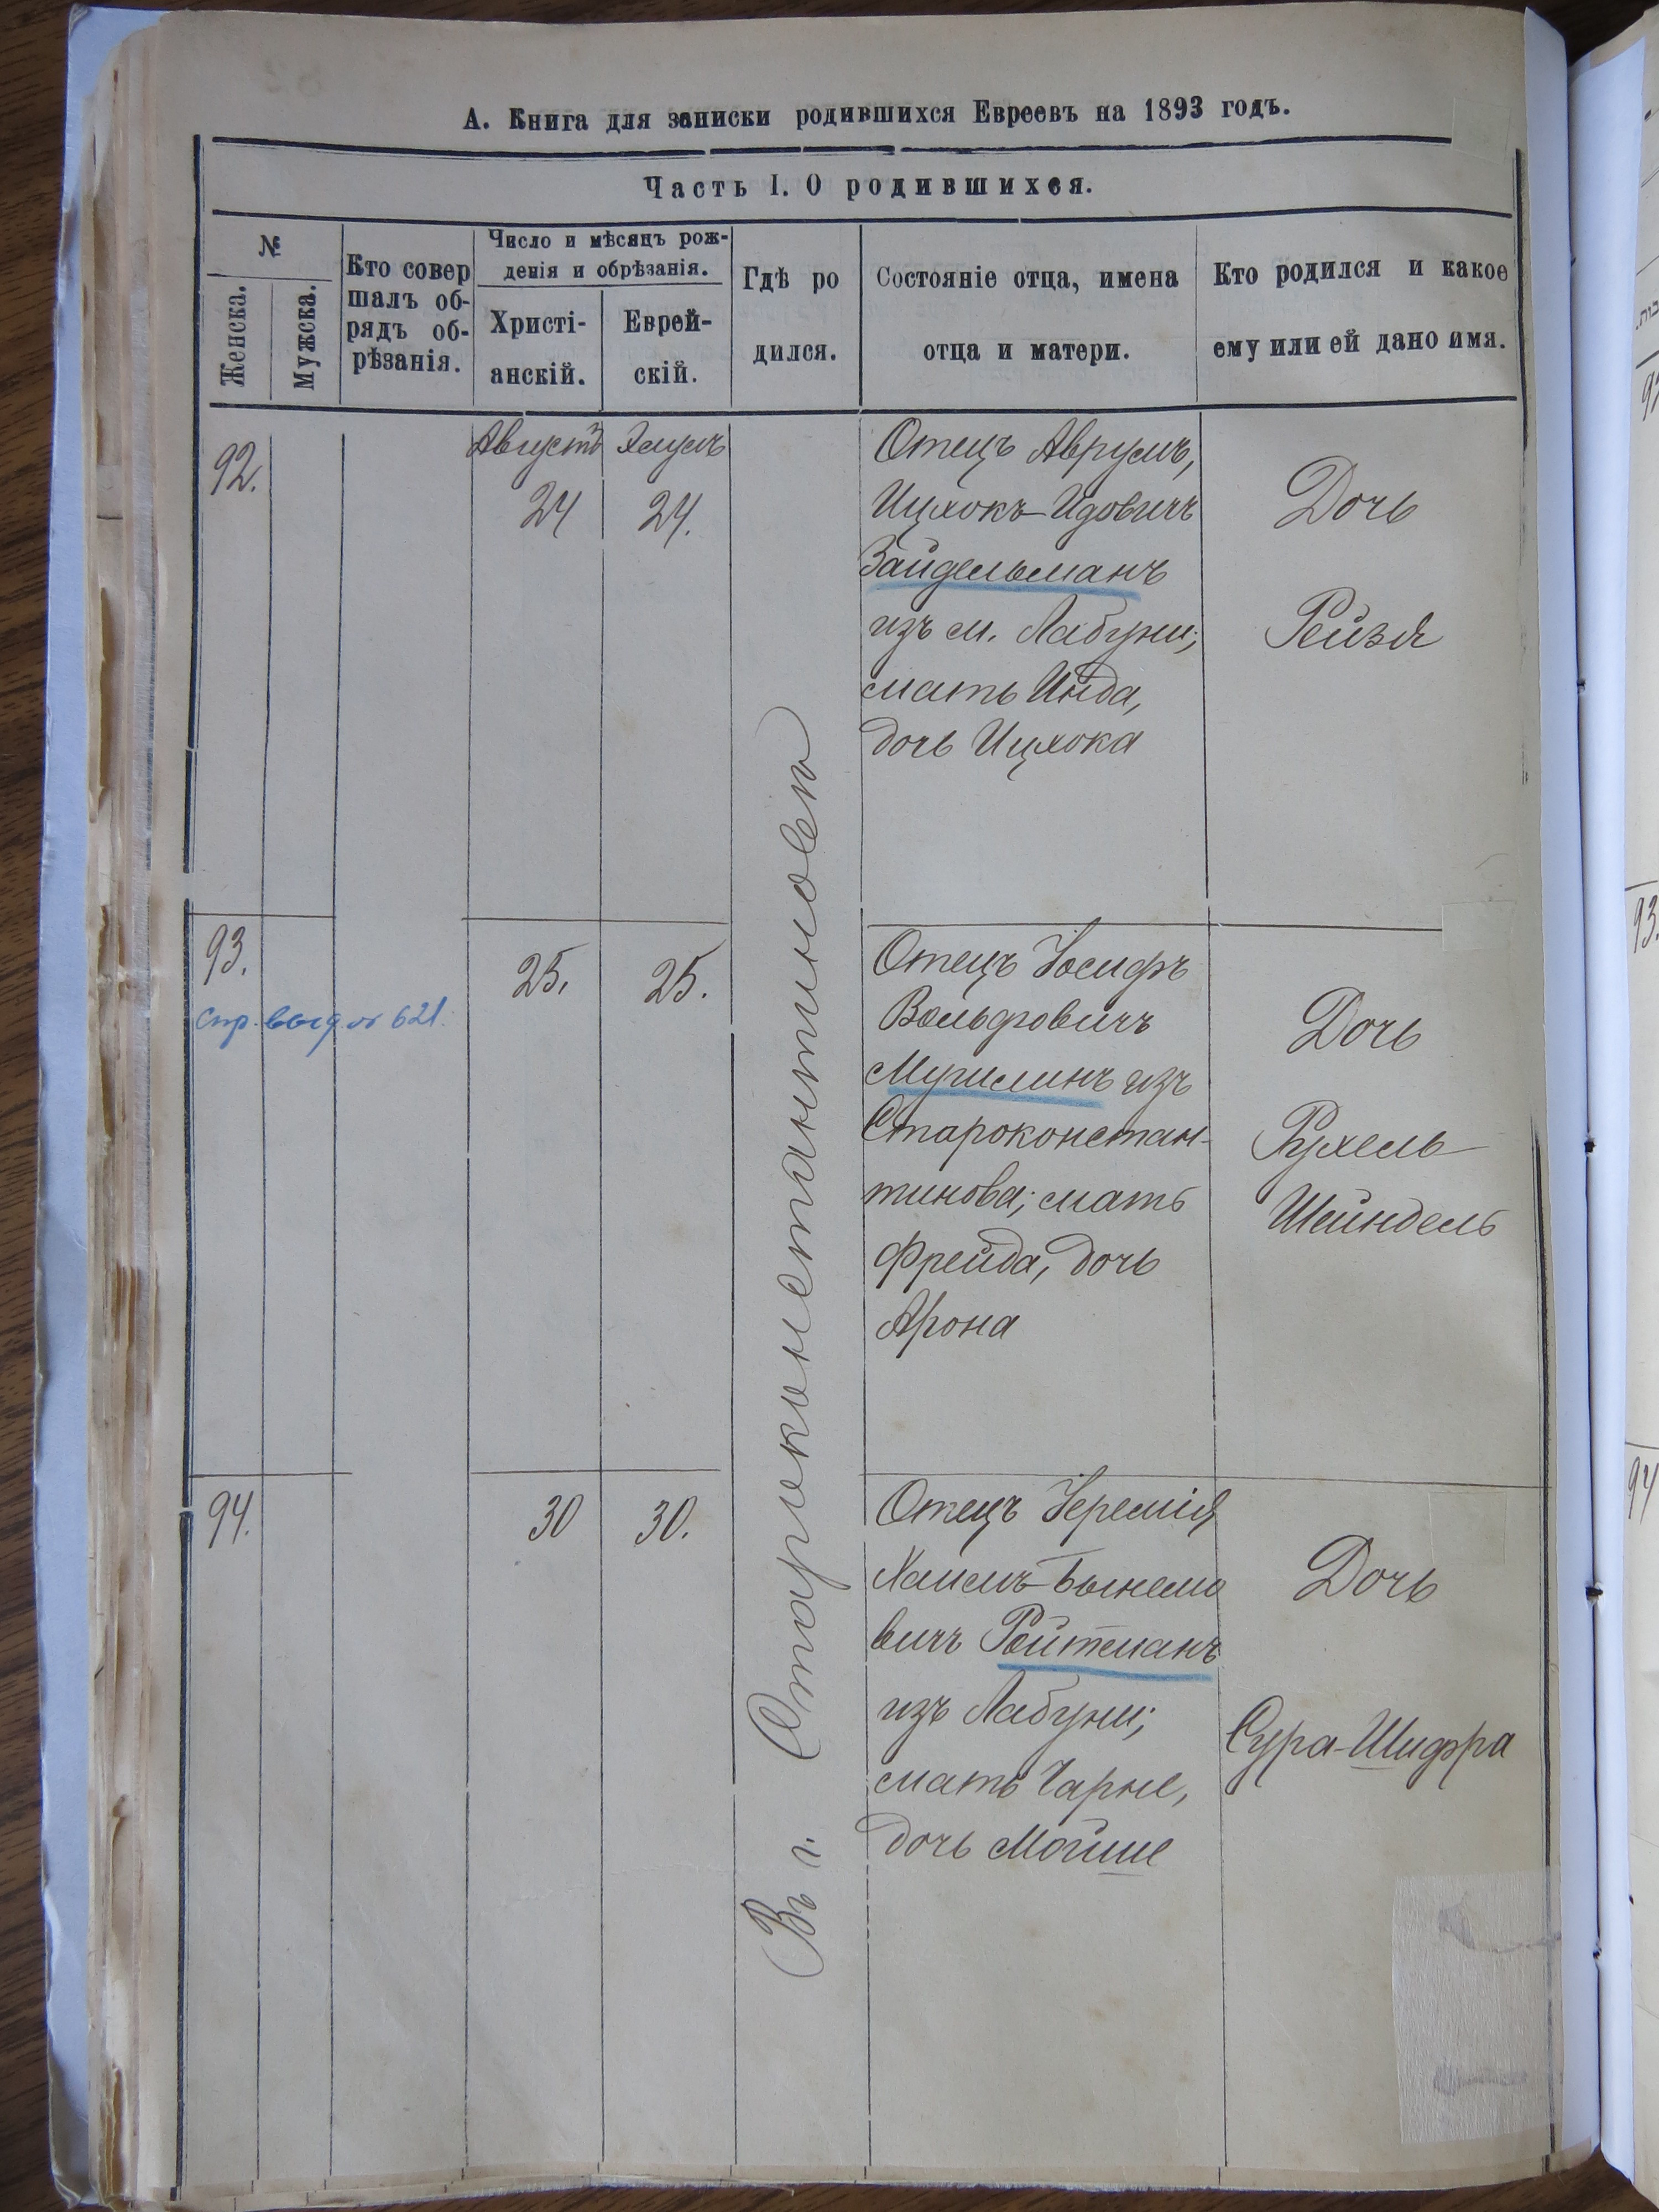 А. Книга для записки родившихся Евреевъ на 1893 годъ.
Часть I. О родившихся.
№
Женска.
Мужска.
Кто совер
шалъ об-
рядъ об-
рѣзанія.
Число и мѣсяцъ рож-
денія и обрѣзанія.
Христі-
анскій.
Еврей-
скій.
Гдѣ ро
дился.
Состояніе отца, имена
отца и матери.
Кто родился и какое
ему или ей дано имя.
92.
Августъ
24
Элулъ
24.
Въ г. Староконстантиновѣ
Отецъ Аврумъ,
Ицхокъ-Идовичъ
Зайдельманъ
изъ м. Лабуни;
мать Инда,
дочь Ицхока
Дочь
Рейзя
93.
спр. выд № 621.
25.
25.
Отецъ Іосифъ
Вольфовичъ
изъ
Староконстан-
тинова; мать
Фрейда, дочь
Арона
Дочь
Рухель
Шейндель
94.
30
30.
Отецъ Іеремія
Хаимъ-Бынемо
вичъ Ройтманъ
изъ Лабуни;
мать Чарне,
дочь Мойше
Дочь
Сура-Шифра